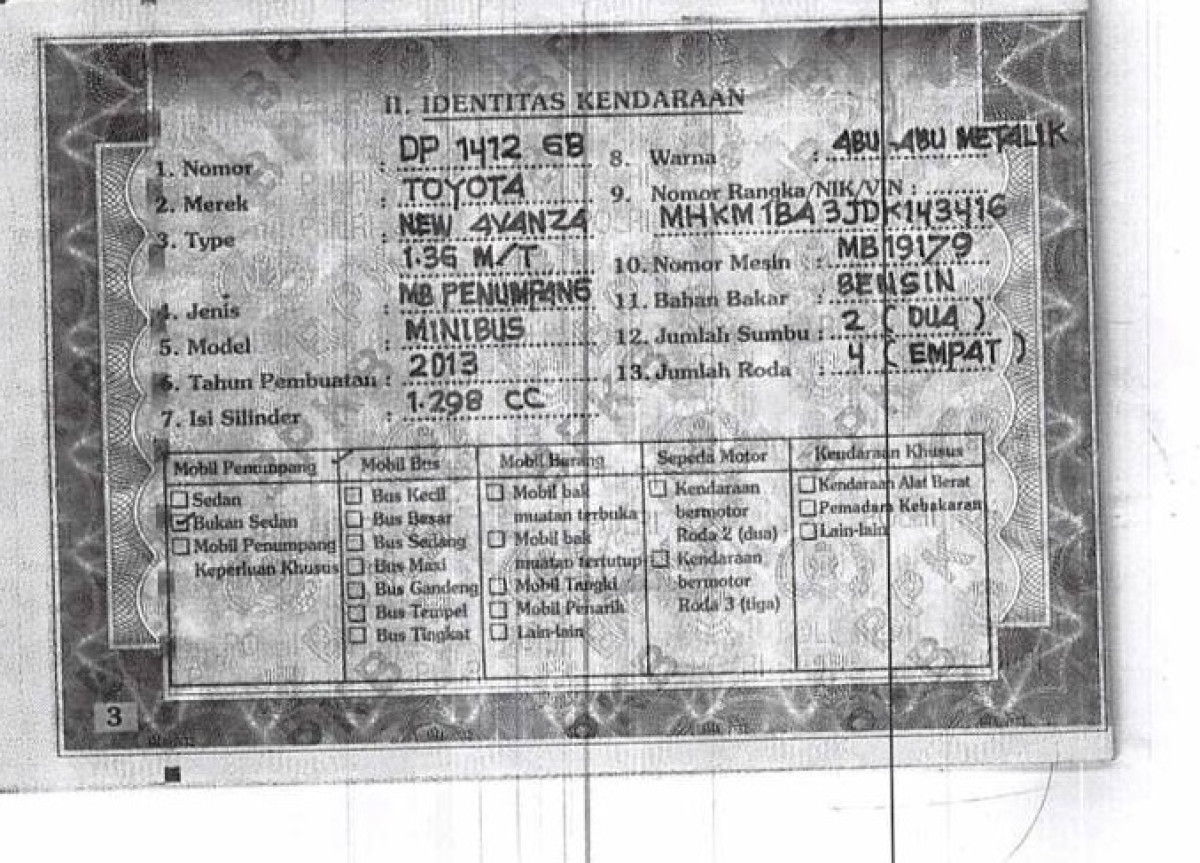 II. IDENTITAS KENDARAAN
1. Nomor : DP 1412 GB
2. Merek : TOYOTA
3. Type : NEW AVANZA
1.3G M/T
4. Jenis : MB PENUMPANG
5. Model : MINIBUS
6. Tahun Pembuatan : 2013
7. Isi Silinder : 1.298 CC
8. Warna : ABU-ABU METALIK
9. Nomor Rangka/NIK/VIN : ..........
MHKM1BA3JDK143416
10. Nomor Mesin : MB19179
11. Bahan Bakar : BENSIN
12. Jumlah Sumbu : 2 ( DUA )
13. Jumlah Roda : 4 ( EMPAT )
Mobil Penumpang
Sedan
Bukan Sedan
Mobil Penumpang
Keperluan Khusus
Mobil Bus
Bus Kecil
Bus Besar
Bus Sedang
Bus Maxi
Bus Gandeng
Bus Tempel
Bus Tingkat
Mobil Barang
Mobil bak
muatan terbuka
Mobil bak
muatan tertutup
Mobil Tangki
Mobil Penarik
Lain-lain
Sepeda Motor
Kendaraan
bermotor
Roda 2 (dua)
Kendaraan
bermotor
Roda 3 (tiga)
Kendaraan Khusus
Kendaraan Alat Berat
Pemadam Kebakaran
Lain-lain
3